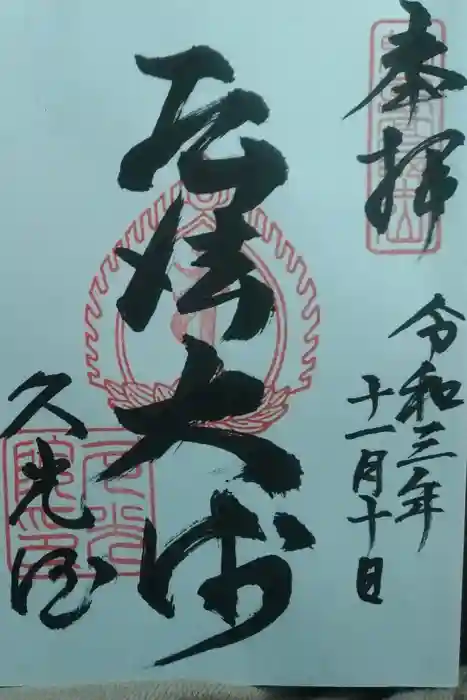 奉拝
令和三年
十一月十日
厄除大師
久光院